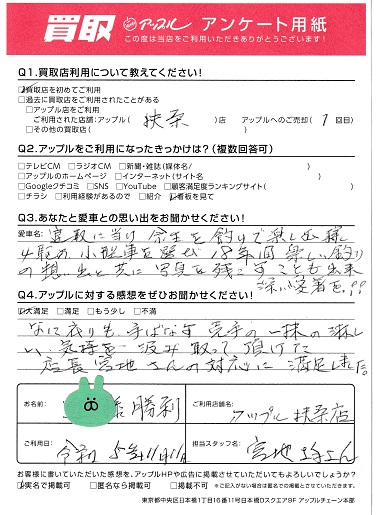 買取 アップル アンケート用紙
この度は当店をご利用いただきありがとうございます！
Q1.買取店利用について教えてください！
☑買取店を初めてご利用
□過去に買取店をご利用されたことがある
□アップル店をご利用
ご利用された店舗：アップル（ 扶桑 ）店 アップルへのご売却（ 1 回目）
□その他の買取店（ ）
Q2.アップルをご利用になったきっかけは？（複数回答可）
□テレビCM □ラジオCM □新聞・雑誌（媒体名／ ）
□アップルのホームページ □インターネット（サイト名 ）
□Googleクチコミ □SNS □YouTube □顧客満足度ランキングサイト（ ）
□チラシ □利用経験があるので □紹介 ☑看板を見て
Q3.あなたと愛車との思い出をお聞かせください！
愛車名：
買取に当り 余生を釣りで楽しむ
小型車を 18年間楽しい釣り
の想い出と共に写真を残こすことも出来
深い愛着を!!
Q4.アップルに対する感想をぜひお聞かせください！
☑大満足 □満足 □もう少し □不満
なに成りも、手ばなす 売手の一抹の淋し
い、気持を 汲み取って頂けた
店長 宮地さんの対応に満足しました。
お名前： 勝利
ご利用店舗名： アップル扶桑店
ご利用日： 令和 5年11月11日
担当スタッフ名： 宮地 さん
お客様に書いていただいた感想を、アップルHPや広告に掲載させていただいてもよろしいでしょうか？
☑実名で掲載可 □匿名なら掲載可 □掲載不可 ※ご記入がない場合は匿名での掲載とさせていただきます。
東京都中央区日本橋1丁目16番11号日本橋Dスクエア9F アップルチェーン本部